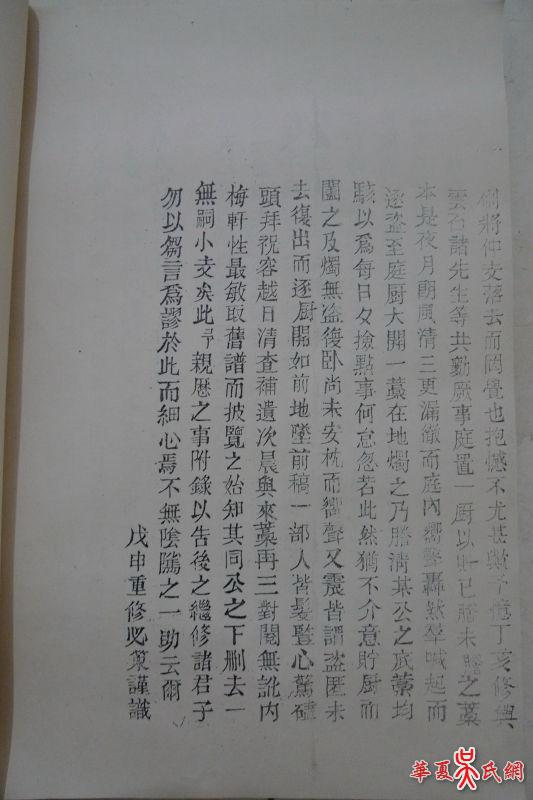 側將仲支落去而罔覺也抱憾不尤甚歟予憶丁亥修與
雲谷諸先生等共勷厥事庭置一厨以貯已謄未謄之藁
本是夜月朗風清三更漏徹而庭內嚮聲轟然羣喊起而
逐盜至庭厨大開一藁在地燭之乃謄清某公之底藁均
駭以爲每日夕撿點事何怠忽若此然猶不介意貯厨而
闔之及燭無盜復卧尚未安枕而嚮聲又震皆謂盜匿未
去復出而逐厨開如前地墜前稿一部人皆髮豎心驚
頭拜祝容越日清查補遺次晨與來藁再三對閱無訛內
梅軒性最敏取舊譜而披覽之始知其同公之下刪去一
無嗣小支矣此予親歷之事附錄以告後之繼修諸君子
勿以芻言爲謬於此而細心焉不無陰隲之一助云爾
戊申重修必策謹識
華夏吴氏網